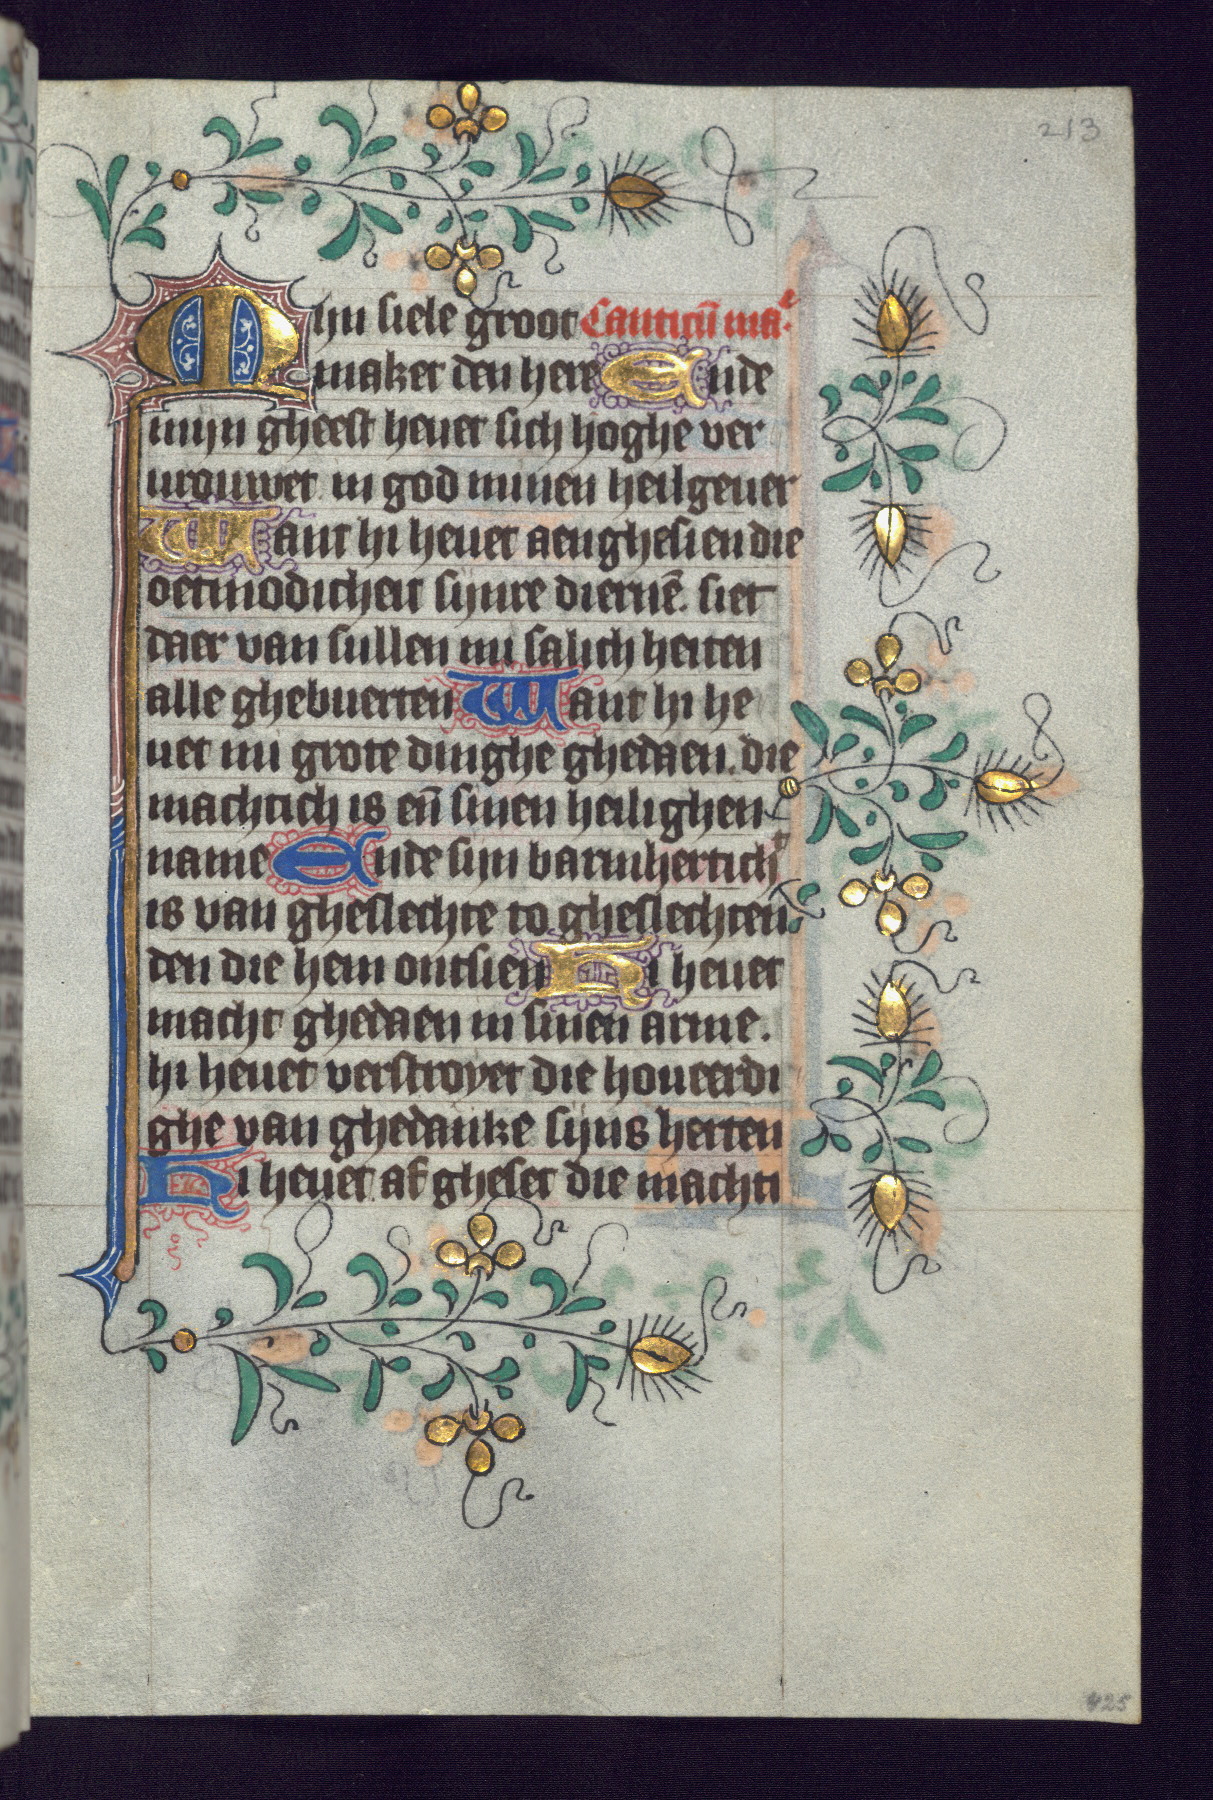 213
Mijn siele groot Canticū ma͛.
maket den here Ende
mijn gheest heuet sich hoghe ver
urouwet in god minen heilgeuer
Want hi heuet aenghesien die
oetmodicheit sijnre diernē. siet
daer van sullen mi salich heiten
alle ghebuerten Want hi he
uet mi grote dinghe ghedaen. die
machtich is eñ sinen heilighen
name Ende sijn barmherticht
is van gheslechte to gheslechten
den die hem ontsien Hi heuet
macht ghedaen in sinen arme.
hi heuet verstroyet die houeerdi
ghe van ghedanke sijns herten
Hi heuet af gheset die machti
425